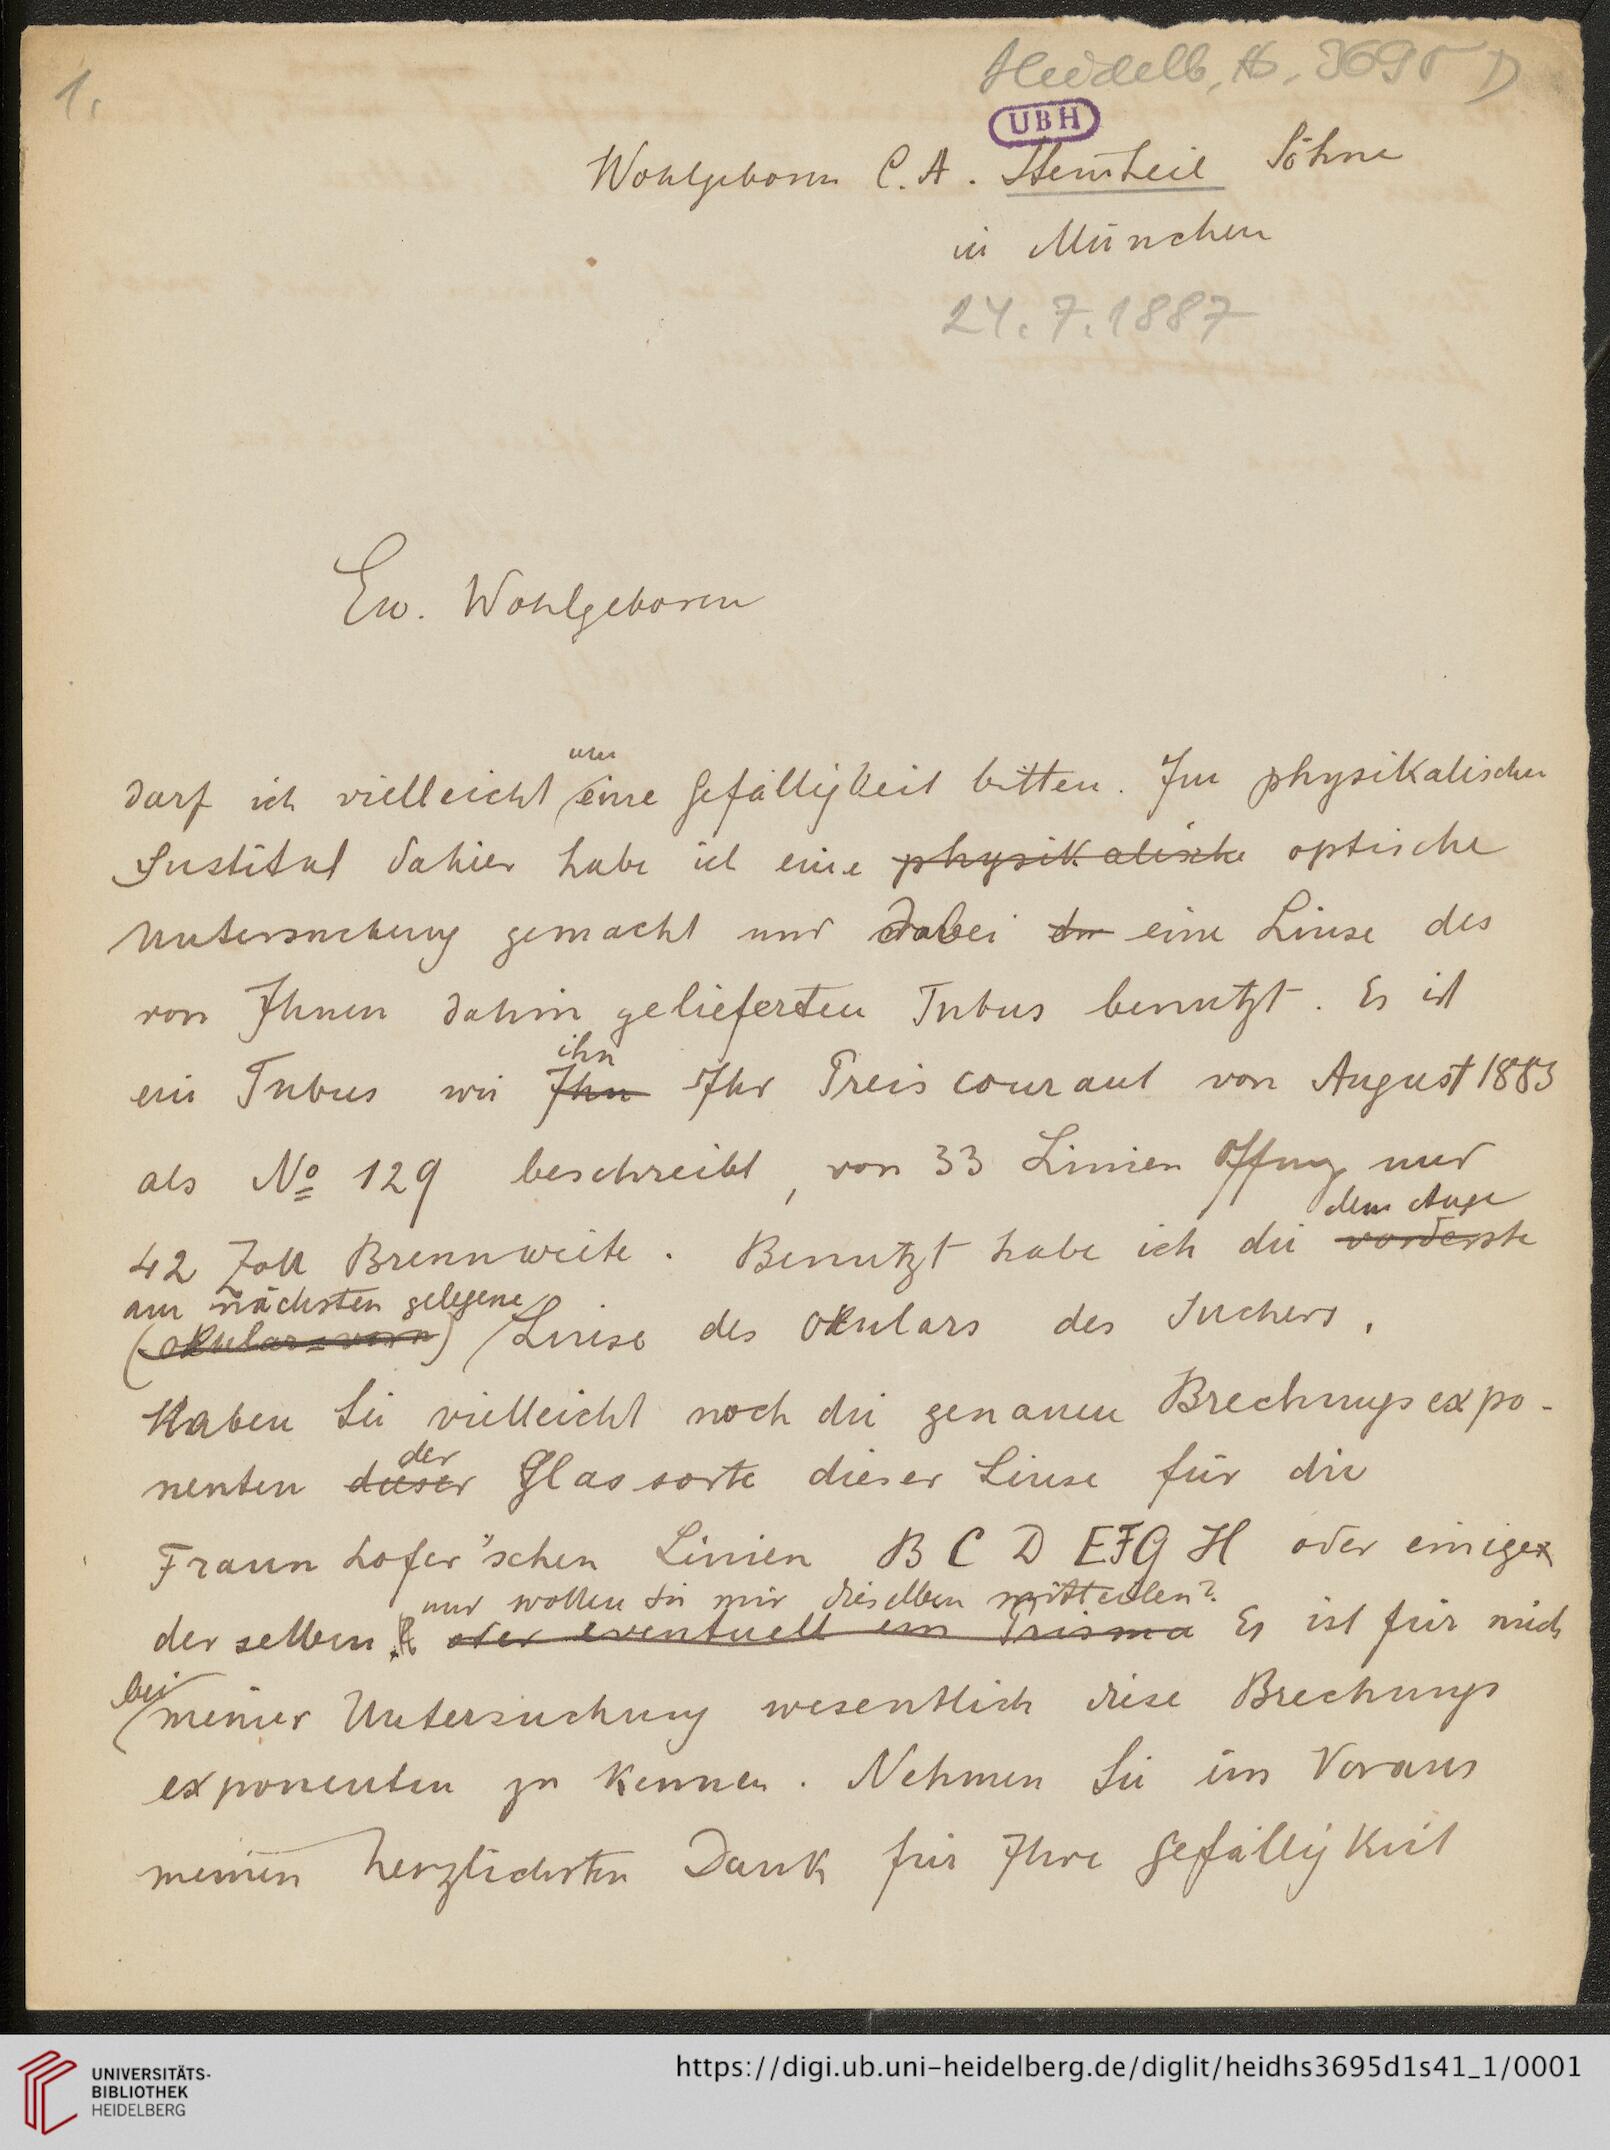 1.
Heidelb. Hs. 3695 D
UBH
Wohlgeboren C. A. Steinheil Söhne
in München
24.7.1887
Ew. Wohlgeboren
um
darf ich vielleicht eine Gefälligkeit bitten. Im physikalischen
Institut dahier habe ich eine physikalische optische
Untersuchung gemacht und dabei eine Linse des
von Ihnen dahin gelieferten Tubus benutzt. Es ist
ihn
ein Tubus wie Ihn Ihr Preiscourant von August 1883
als No 129 beschreibt, von 33 Linien Öffnung und
dem Auge
42 Zoll Brennweite. Benutzt habe ich die vorderste
am nächsten gelegene
(okular-vorn) Linse des Okulars des Suchers.
Haben Sie vielleicht noch die genauen Brechungsexpo-
der
nenten dieser Glassorte dieser Linse für die
Fraunhofer'schen Linien B C D E F G H oder einiger
und wollen Sie mir dieselben mitteilen?
derselben oder eventuell ein Prisma Es ist für mich
bei
meiner Untersuchung wesentlich diese Brechungs
exponenten zu kennen. Nehmen Sie im Voraus
meinen herzlichsten Dank für Ihre Gefälligkeit
UNIVERSITÄTS-
BIBLIOTHEK
HEIDELBERG
https://digi.ub.uni-heidelberg.de/diglit/heidhs3695d1s41_1/0001